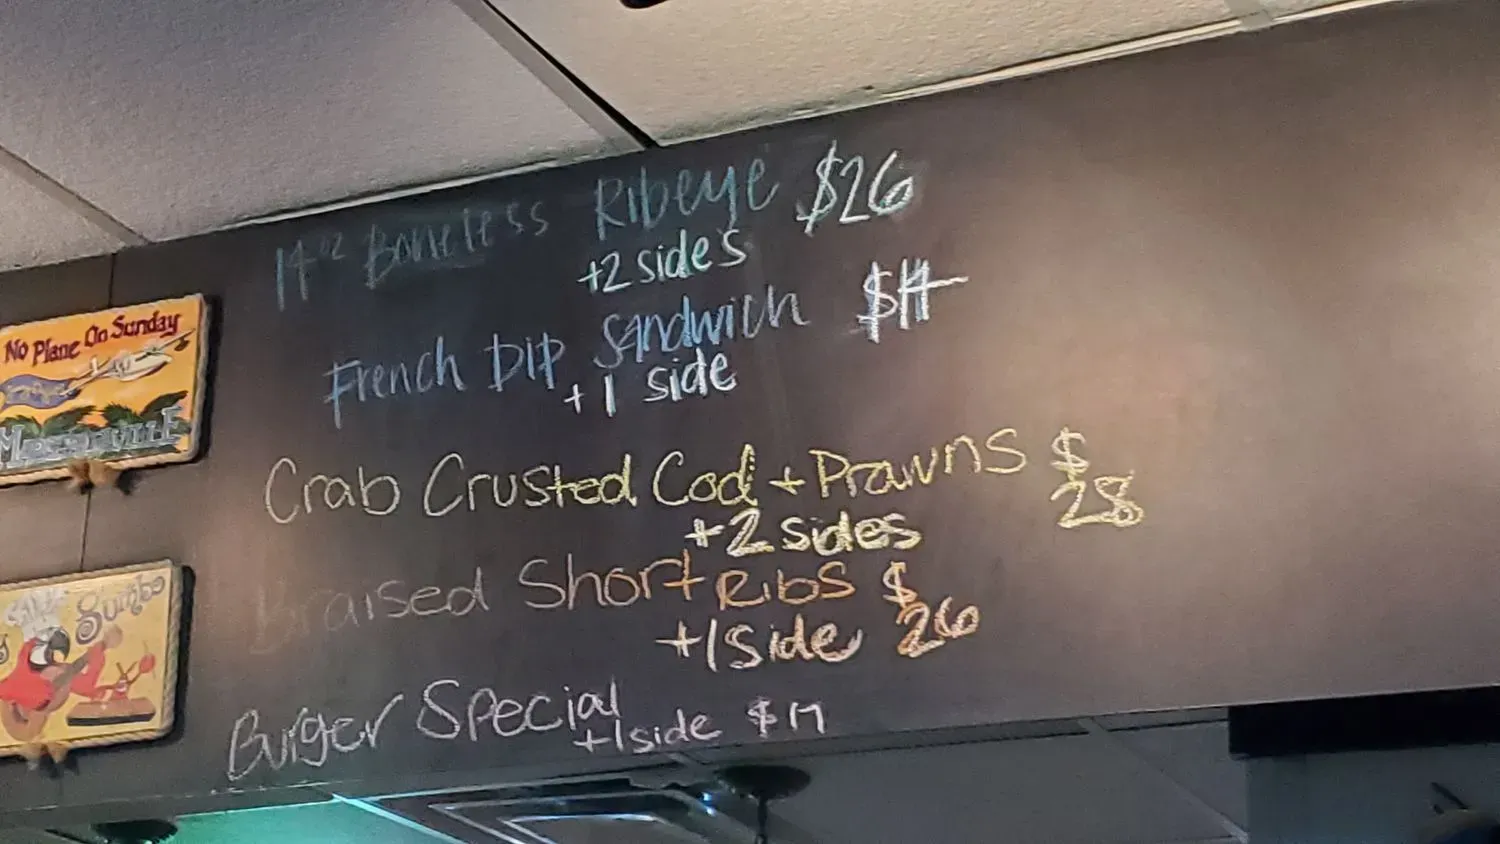 14oz Boneless Ribeye $26
+2 sides
French Dip Sandwich $14
+ 1 side
Crab Crusted Cod + Prawns $28
+2 sides
Braised Short Ribs $26
+1 side
Burger Special $17
+1 side
No Plane On Sunday
MARGARITAVILLE
Gumbo